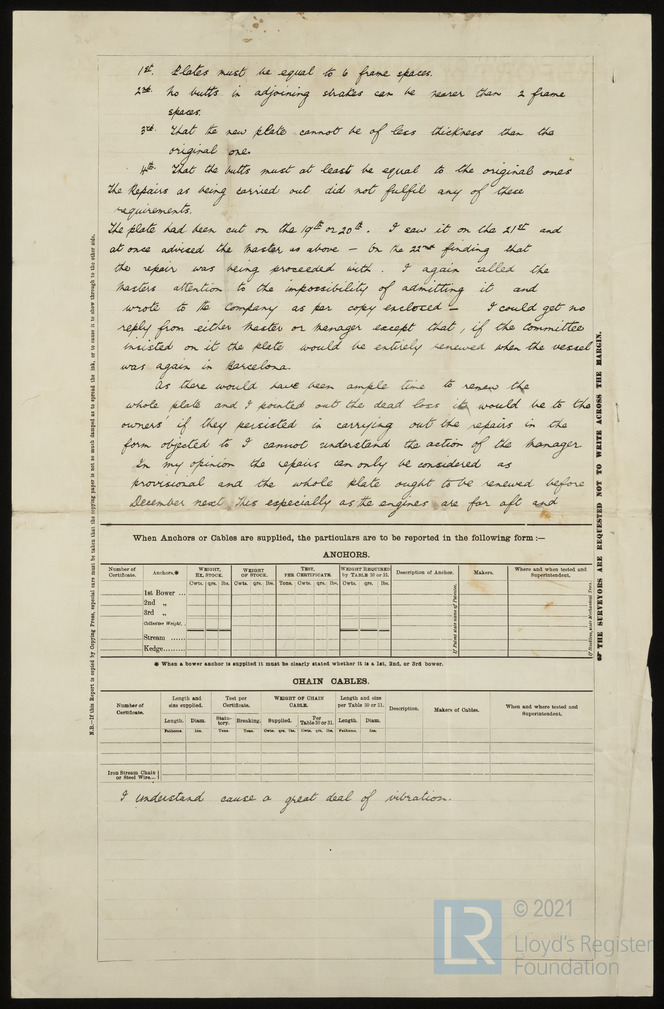 1st. Plates must be equal to 6 frame spaces.
2nd. No butts in adjoining strakes can be nearer than 2 frame
spaces.
3rd. That the new plate cannot be of less thickness than the
original one.
4th. That the butts must at least be equal to the original ones
The Repairs as being carried out did not fulfil any of these
requirements.
The plate had been cut on the 19th or 20th. I saw it on the 21st and
at once advised the Master as above – On the 22nd finding that
the repair was being proceeded with. I again called the
Masters attention to the impossibility of admitting it and
wrote to the Company as per copy enclosed – I could get no
reply from either Master or Manager except that, if the Committee
insisted on it the plate would be entirely renewed when the vessel
was again in Barcelona.
As there would have been ample time to renew the
whole plate and I pointed out the dead loss it would be to the
owners if they persisted in carrying out the repairs in the
form objected to I cannot understand the action of the Manager
In my opinion the repairs can only be considered as
provisional and the whole plate ought to be renewed before
December next. This especially as the engines are far aft and
When Anchors or Cables are supplied, the particulars are to be reported in the following form :—
ANCHORS.
Number of Certificate. Anchors.* WEIGHT, EX. STOCK. WEIGHT OF STOCK. TEST, PER CERTIFICATE. WEIGHT REQUIRED by TABLE 30 or 31. Description of Anchor. Makers. Where and when tested and Superintendent.
Cwts. qrs. lbs. Cwts. qrs. lbs. Tons. Cwts. Cwts. qrs. lbs.
1st Bower ...
2nd „
3rd „
Collective Weight.
Stream ......
Kedge........
* When a bower anchor is supplied it must be clearly stated whether it is a 1st, 2nd, or 3rd bower.
CHAIN CABLES.
Number of Certificate. Length and size supplied. Test per Certificate. WEIGHT OF CHAIN CABLE. Length and size per Table 30 or 31. Description. Makers of Cables. When and where tested and Superintendent.
Length. Diam. Statutory. Breaking. Supplied. Per Table 30 or 31. Length. Diam.
Fathoms. Ins. Tons. Tons. Cwts. qrs. lbs. Cwts. qrs. lbs. Fathoms. Ins.
Iron Stream Chain
or Steel Wire...
I understand cause a great deal of vibration.
N.B.—If this Report is copied by Copying Press, especial care must be taken that the copying paper is not so much damped as to spread the ink, or to cause it to show through to the other side.
THE SURVEYORS ARE REQUESTED NOT TO WRITE ACROSS THE MARGIN.
LR
© 2021
Lloyd's Register
Foundation